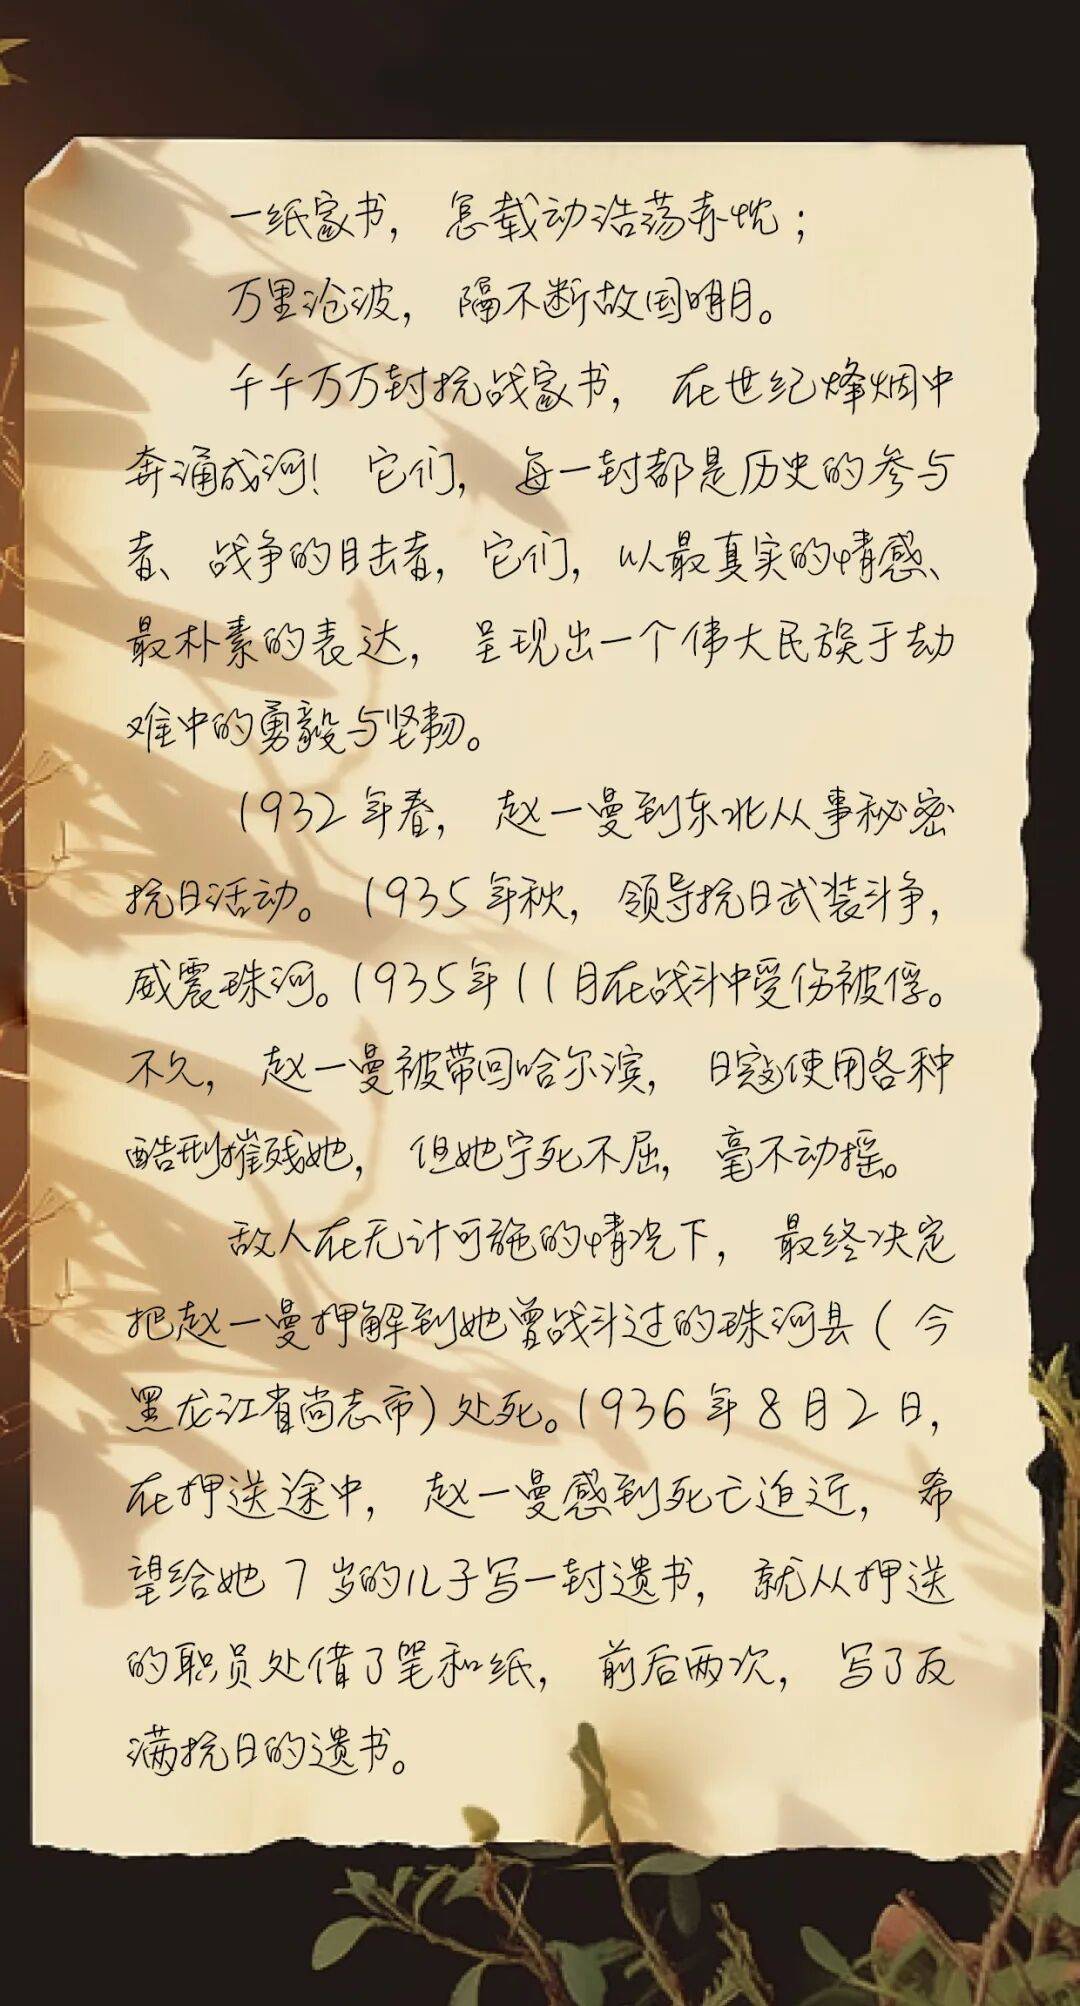 一纸家书，怎载动浩荡赤忱；
万里沧波，隔不断故国明月。
千千万万封抗战家书，在世纪烽烟中
奔涌成河！它们，每一封都是历史的参与
者、战争的目击者，它们，以最真实的情感、
最朴素的表达，呈现出一个伟大民族于劫
难中的勇毅与坚韧。
1932年春，赵一曼到东北从事秘密
抗日活动。1935年秋，领导抗日武装斗争，
威震珠河。1935年11月在战斗中受伤被俘。
不久，赵一曼被带回哈尔滨，日寇使用各种
酷刑摧残她，但她宁死不屈，毫不动摇。
敌人在无计可施的情况下，最终决定
把赵一曼押解到她曾战斗过的珠河县（今
黑龙江省尚志市）处死。1936年8月2日，
在押送途中，赵一曼感到死亡迫近，希
望给她7岁的儿子写一封遗书，就从押送
的职员处借了笔和纸，前后两次，写了反
满抗日的遗书。